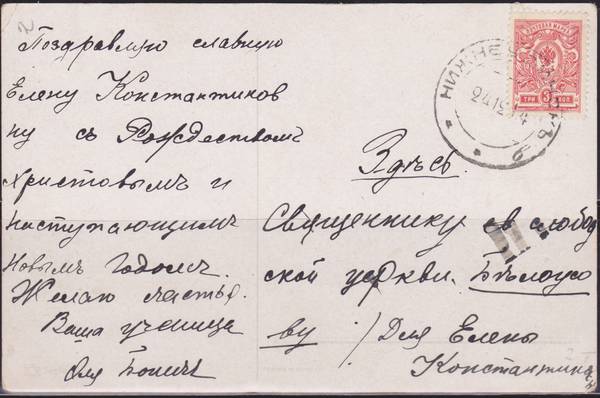 Поздравляю славную
Елену Константинов
ну съ Рождествомъ
Христовымъ и
наступающимъ
Новымъ Годомъ.
Желаю счастья.
Ваша ученица
Оля
Здѣсь.
Священнику слобод
ской церкви. Бѣлоусо
ву / Для Елены
Константинов
ПОЧТОВАЯ МАРКА
ТРИ 3 КОП.
24 12 14
б